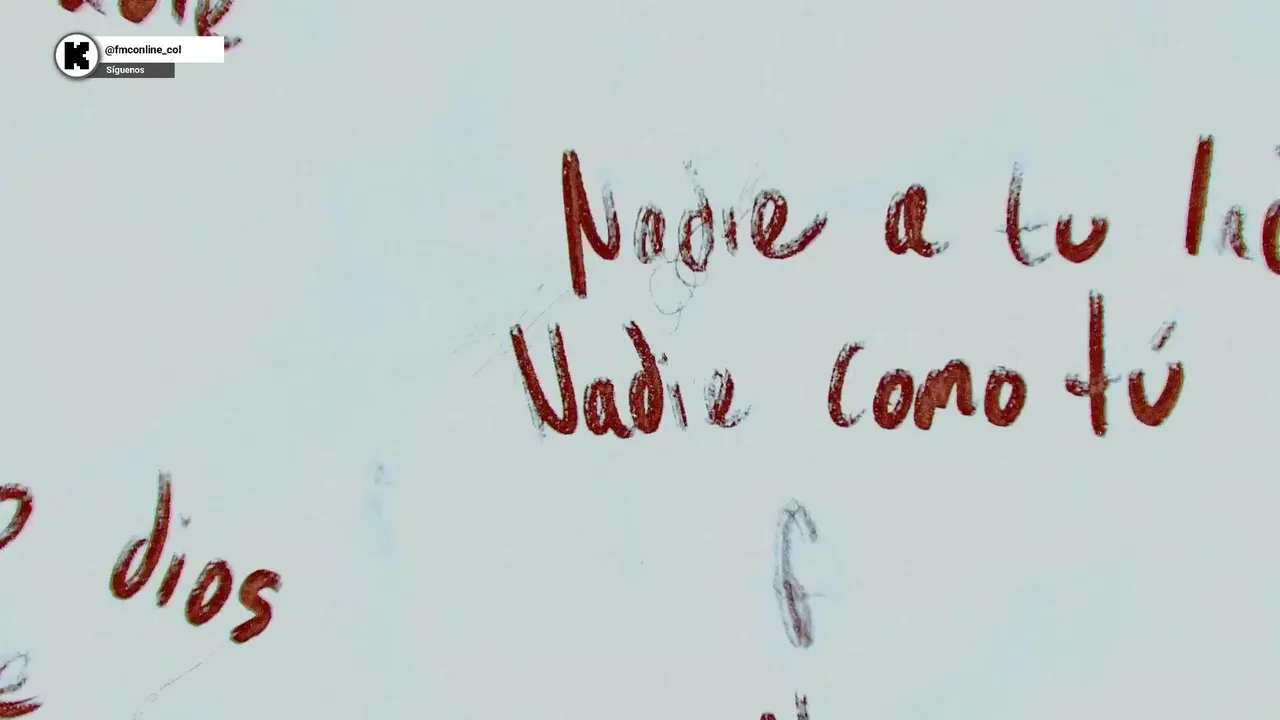 @fmconline_col
Síguenos
Nadie a tu
Nadie como tú
dios